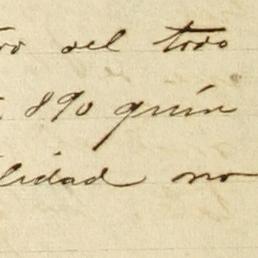 ro del todo
890 quin
lidad no